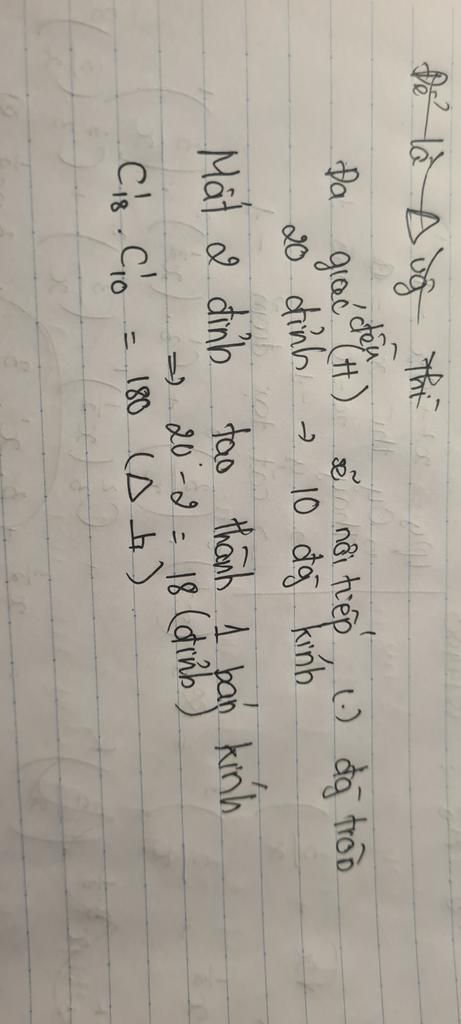 Để là Δ vg thì
Đa giác đều (H) sẽ nội tiếp (.) đg tròn
20 đỉnh → 10 đg kính
Mất 2 đỉnh tạo thành 1 bán kính
⇒ 20 - 2 = 18 (đỉnh)
C¹₁₈ . C¹₁₀ = 180 (Δ)